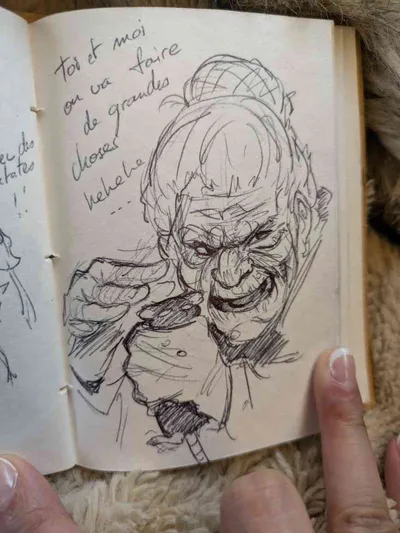 toi et moi
on va faire
de grandes
choses
hehehe
...
des
!!